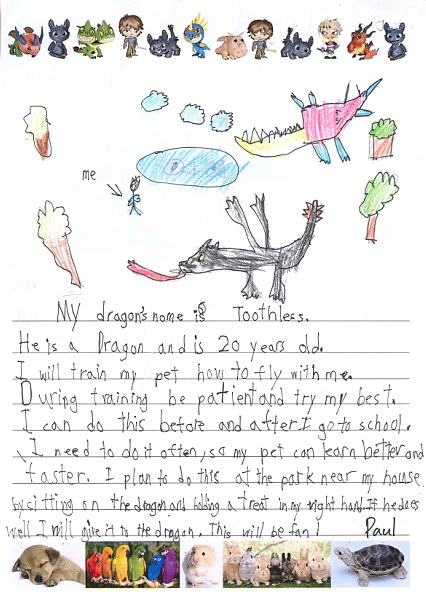 me
My dragon's name is Toothless.
He is a Dragon and is 20 years old.
I will train my pet how to fly with me.
During training be patient and try my best.
I can do this before and after I go to school.
I need to do it often, so my pet can learn better and
faster. I plan to do this at the park near my house
by sitting on the dragon and holding a treat in my right hand. If he does
well I will give it to the dragon. This will be fan! Paul